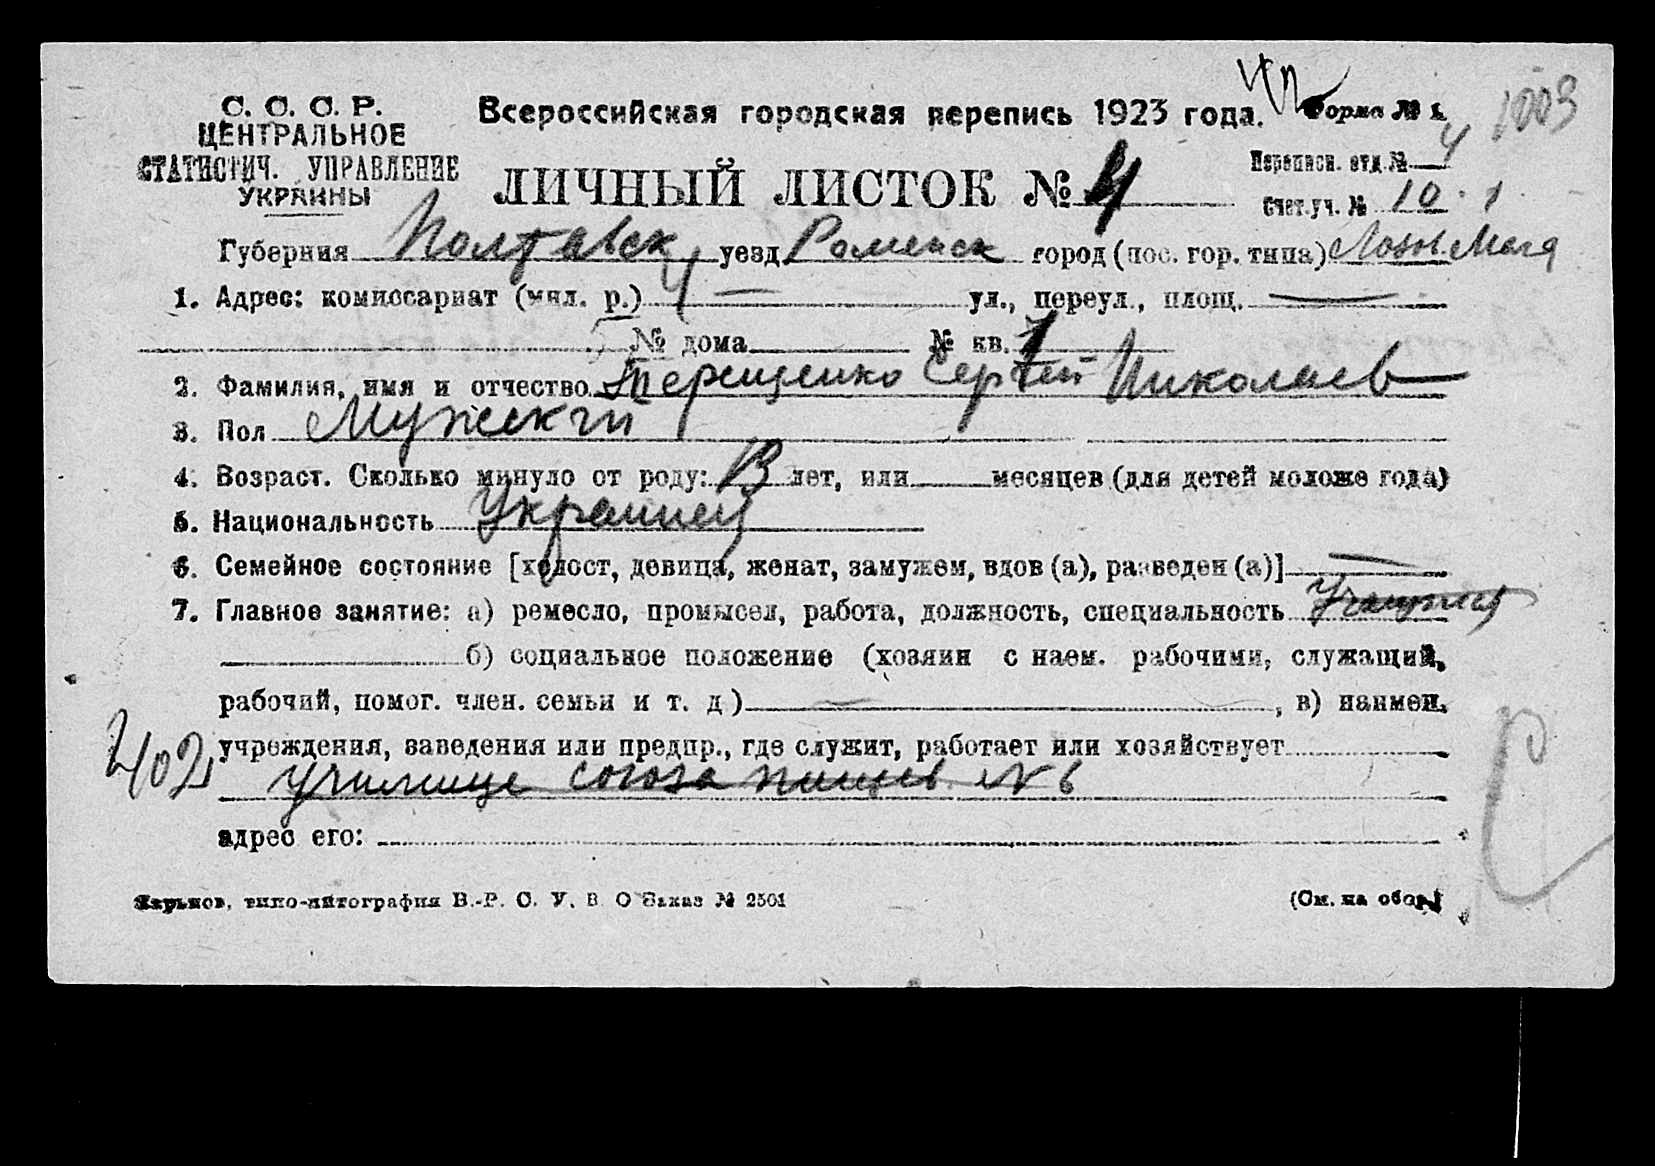 1003
С. С. С. Р.
ЦЕНТРАЛЬНОЕ
СТАТИСТИЧ. УПРАВЛЕНИЕ
УКРАИНЫ
Всероссийская городская перепись 1923 года.
Форма № 1.
ЛИЧНЫЙ ЛИСТОК № 4
Переписн. отд. № 4
Счет. уч. № 10.1
Губерния Полтавск уезд Роменск город (пос. гор. типа)
1. Адрес: комиссариат (мил. р.) 4 — ул., переул., площ. —
5 № дома № кв. 7
2. Фамилия, имя и отчество Терещенко Сергей Николаев
3. Пол Мужский
4. Возраст. Сколько минуло от роду: 13 лет, или месяцев (для детей моложе года)
5. Национальность Украинец
6. Семейное состояние [холост, девица, женат, замужем, вдов (а), разведен (а)] —
7. Главное занятие: а) ремесло, промысел, работа, должность, специальность Учащийся
б) социальное положение (хозяин с наем. рабочими, служащий,
рабочий, помог. член. семьи и т. д) — , в) наимен.
учреждения, заведения или предпр., где служит, работает или хозяйствует
402
училище союза пищев № 6
адрес его:
Харьков, типо-литография В.-Р. С. У. В. О Заказ № 2501
(См. на обор.)